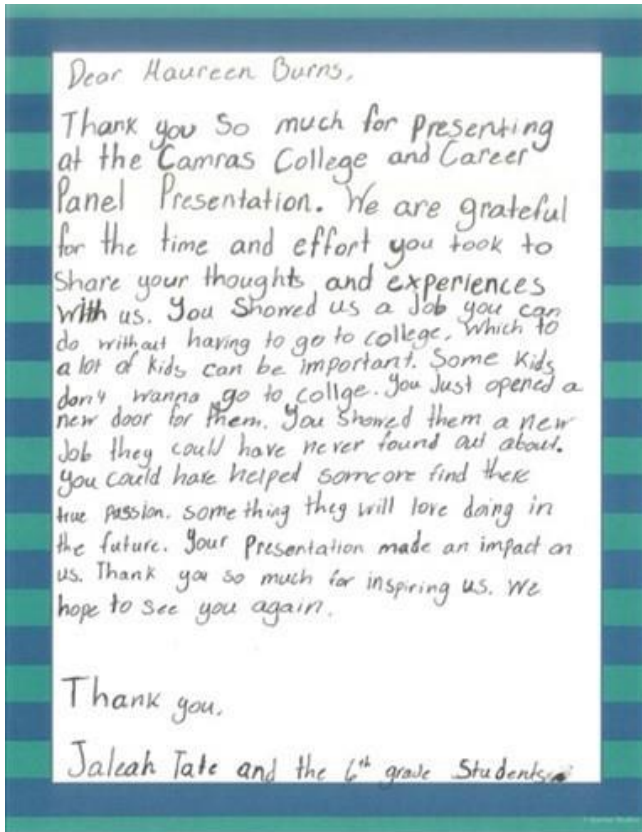 Dear Maureen Burns,
Thank you So much for presenting
at the Camras College and Career
Panel Presentation. We are grateful
for the time and effort you took to
Share your thoughts and experiences
with us. You Showed us a Job you can
do without having to go to college. Which to
a lot of kids can be important. Some kids
don't wanna go to collge. You Just opened a
new door for them. You Showed them a new
Job they could have never found out about.
You could have helped someone find there
true passion. something they will love doing in
the future. Your Presentation made an impact on
us. Thank you so much for inspiring us. We
hope to see you again.
Thank you,
Jaleah Tate and the 6th grade Students